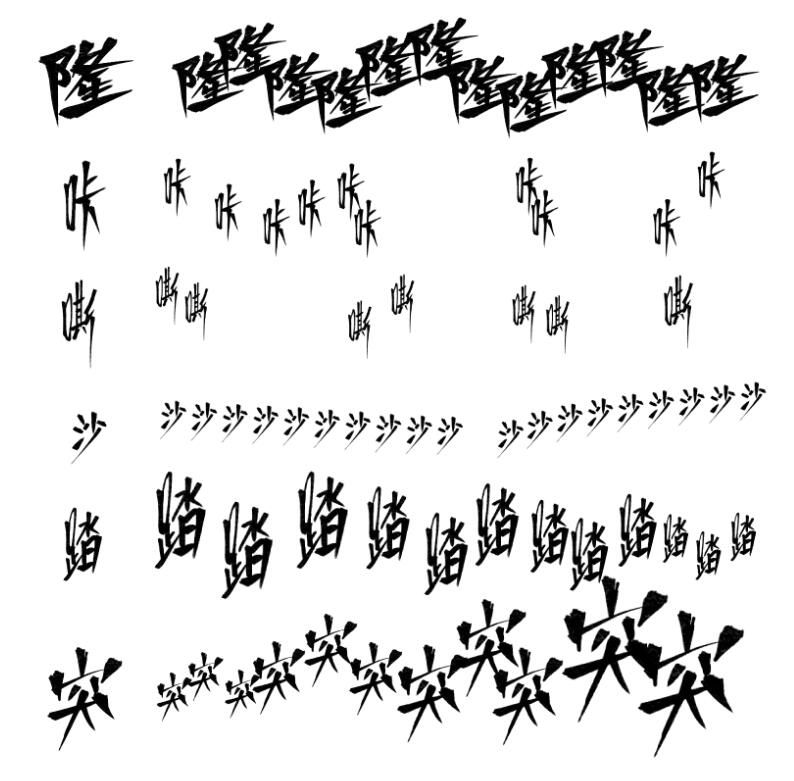 隆 隆隆隆隆隆隆隆隆隆隆隆隆
咔 咔咔咔咔咔咔咔咔咔咔
嘶 嘶嘶嘶嘶嘶嘶嘶
沙 沙沙沙沙沙沙沙沙沙沙 沙沙沙沙沙沙沙沙沙
踏 踏踏踏踏踏踏踏踏踏踏踏踏
突 突突突突突突突突突突突